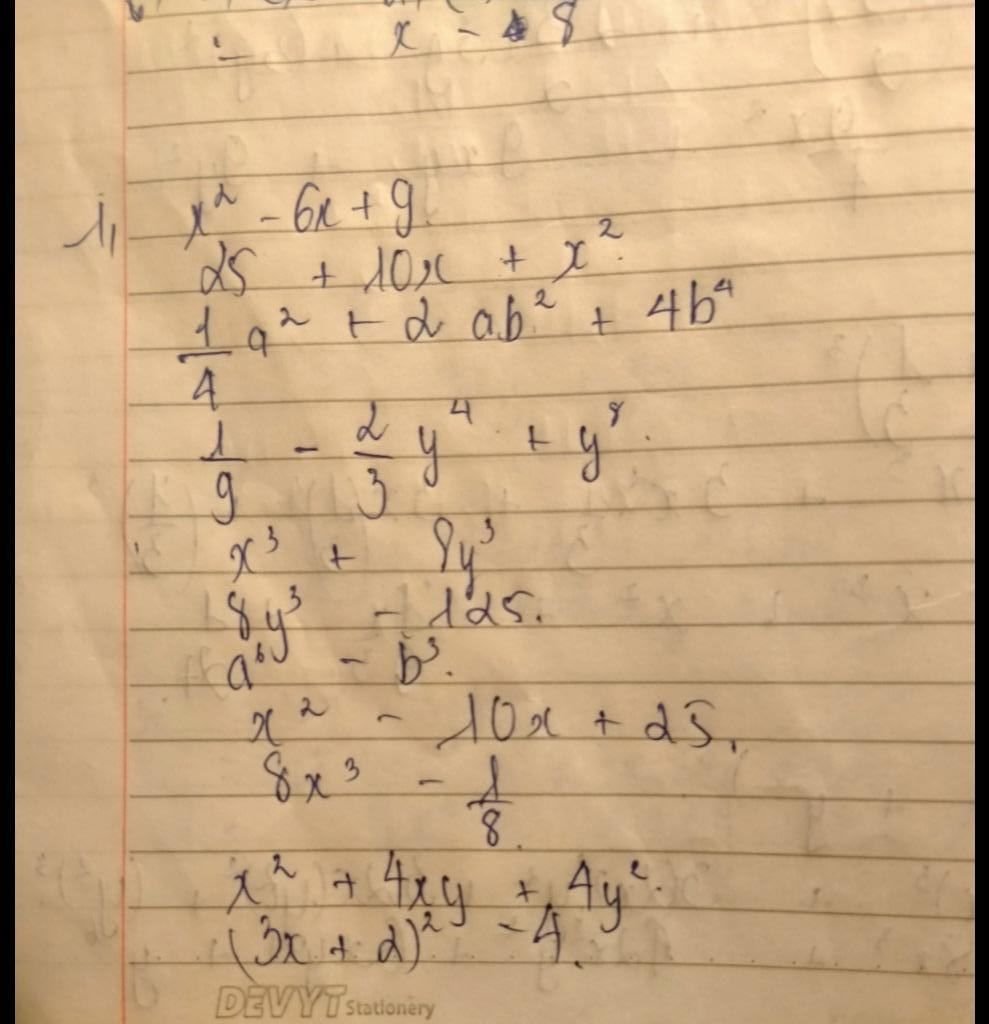 x - 8
1, x² - 6x + 9.
25 + 10x + x².
1/4 a² + 2 ab² + 4b⁴
1/9 - 2/3 y⁴ + y⁸.
x³ + 8y³
8y³ - 125.
a⁶ - b³.
x² - 10x + 25.
8x³ - 1/8.
x² + 4xy + 4y².
(3x + 2)² - 4.
DEVYT Stationery